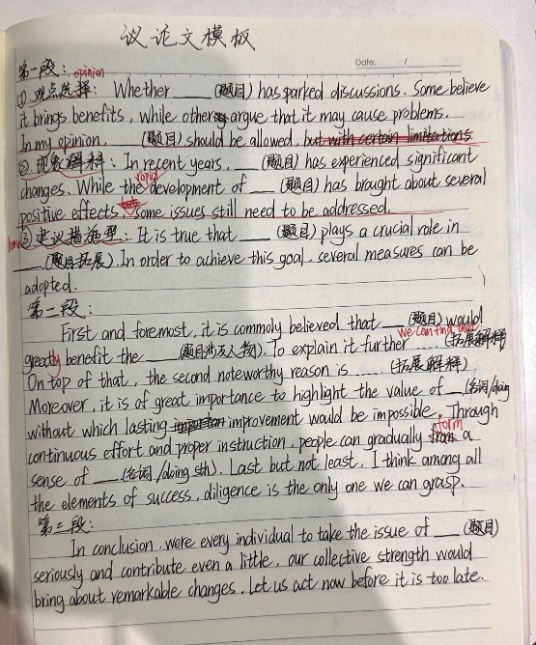 议论文模板
Date. /
第一段:
opinion
① 观点选择: Whether ___ (题目) has sparked discussions. Some believe
it brings benefits, while others argue that it may cause problems.
In my opinion, ___ (题目) should be allowed, but with certain limitations
② 现象解释: In recent years, ___ (题目) has experienced significant
rapid
changes. While the development of ___ (题目) has brought about several
positive effects, some issues still need to be addressed.
③ 建议措施型: It is true that ___ (题目) plays a crucial role in
___ (题目拓展) In order to achieve this goal, several measures can be
adopted.
第二段:
First and foremost, it is commoly believed that ___ (题目) would
we can find that
greatly benefit the ___ (题目涉及人物). To explain it further ...... (拓展解释)
On top of that, the second noteworthy reason is ...... (拓展解释)
Moreover, it is of great importance to highlight the value of ___ (名词/doing
without which lasting improvement would be impossible. Through
form
continuous effort and proper instruction, people can gradually from a
sense of ___ (名词/doing sth). Last but not least, I think among all
the elements of success, diligence is the only one we can grasp.
第三段:
In conclusion, were every individual to take the issue of ___ (题目)
seriously and contribute even a little, our collective strength would
bring about remarkable changes. Let us act now before it is too late.